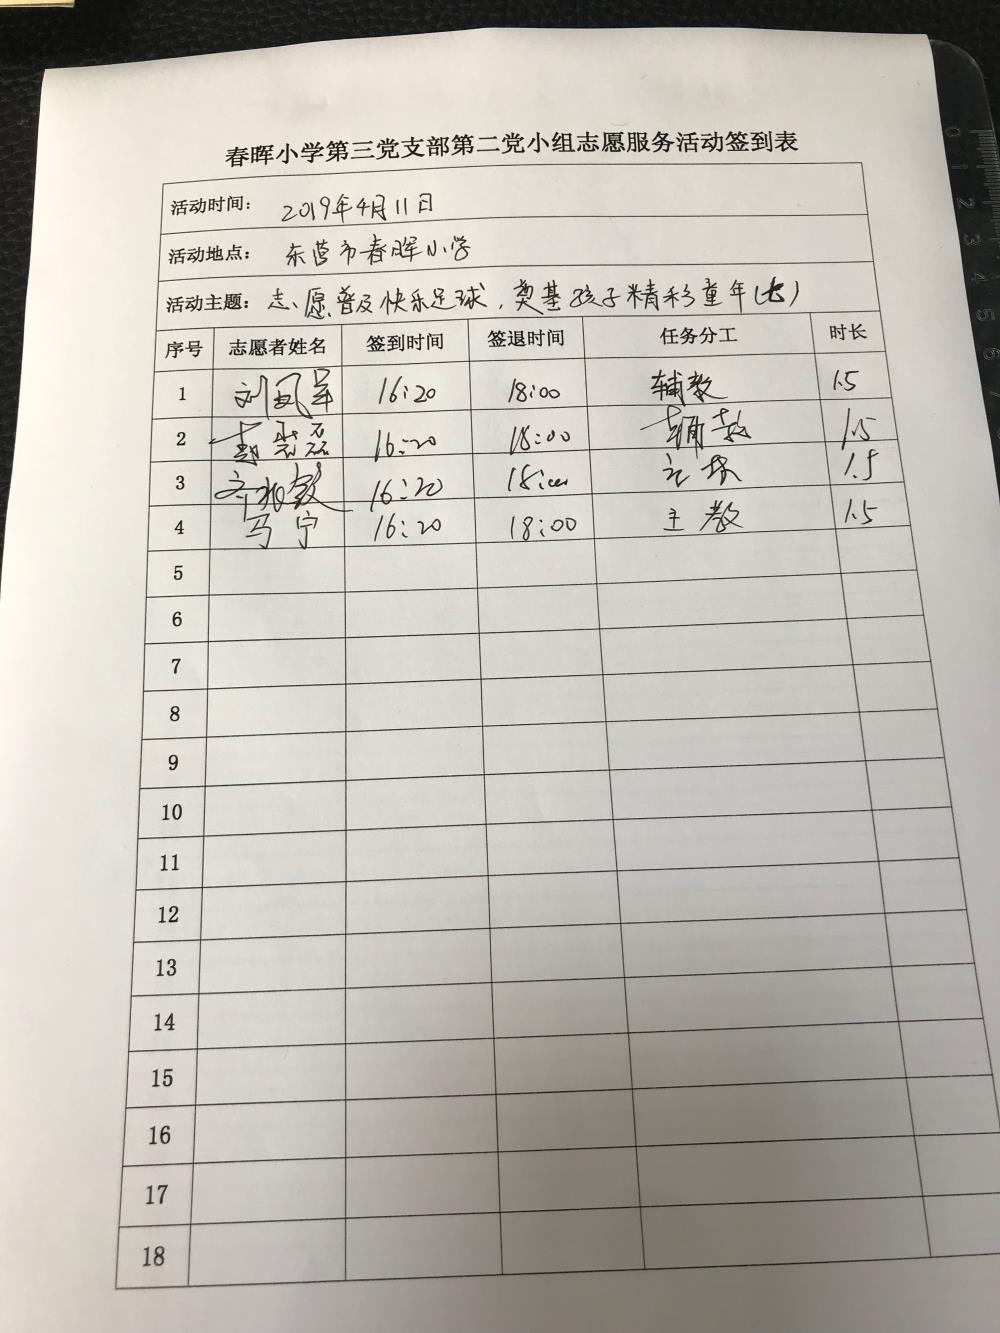 春晖小学第三党支部第二党小组志愿服务活动签到表
活动时间： 2019年4月11日
活动地点： 东营市春晖小学
活动主题： 志愿普及快乐足球，奠基孩子精彩童年（七）
序号 志愿者姓名 签到时间 签退时间 任务分工 时长
1 刘凤军 16:20 18:00 辅教 1.5
2 磊 16:20 18:00 辅教 1.5
3 16:20 18:00 1.5
4 马宁 16:20 18:00 主教 1.5
5
6
7
8
9
10
11
12
13
14
15
16
17
18
0 1 2 3 4 5 6 7